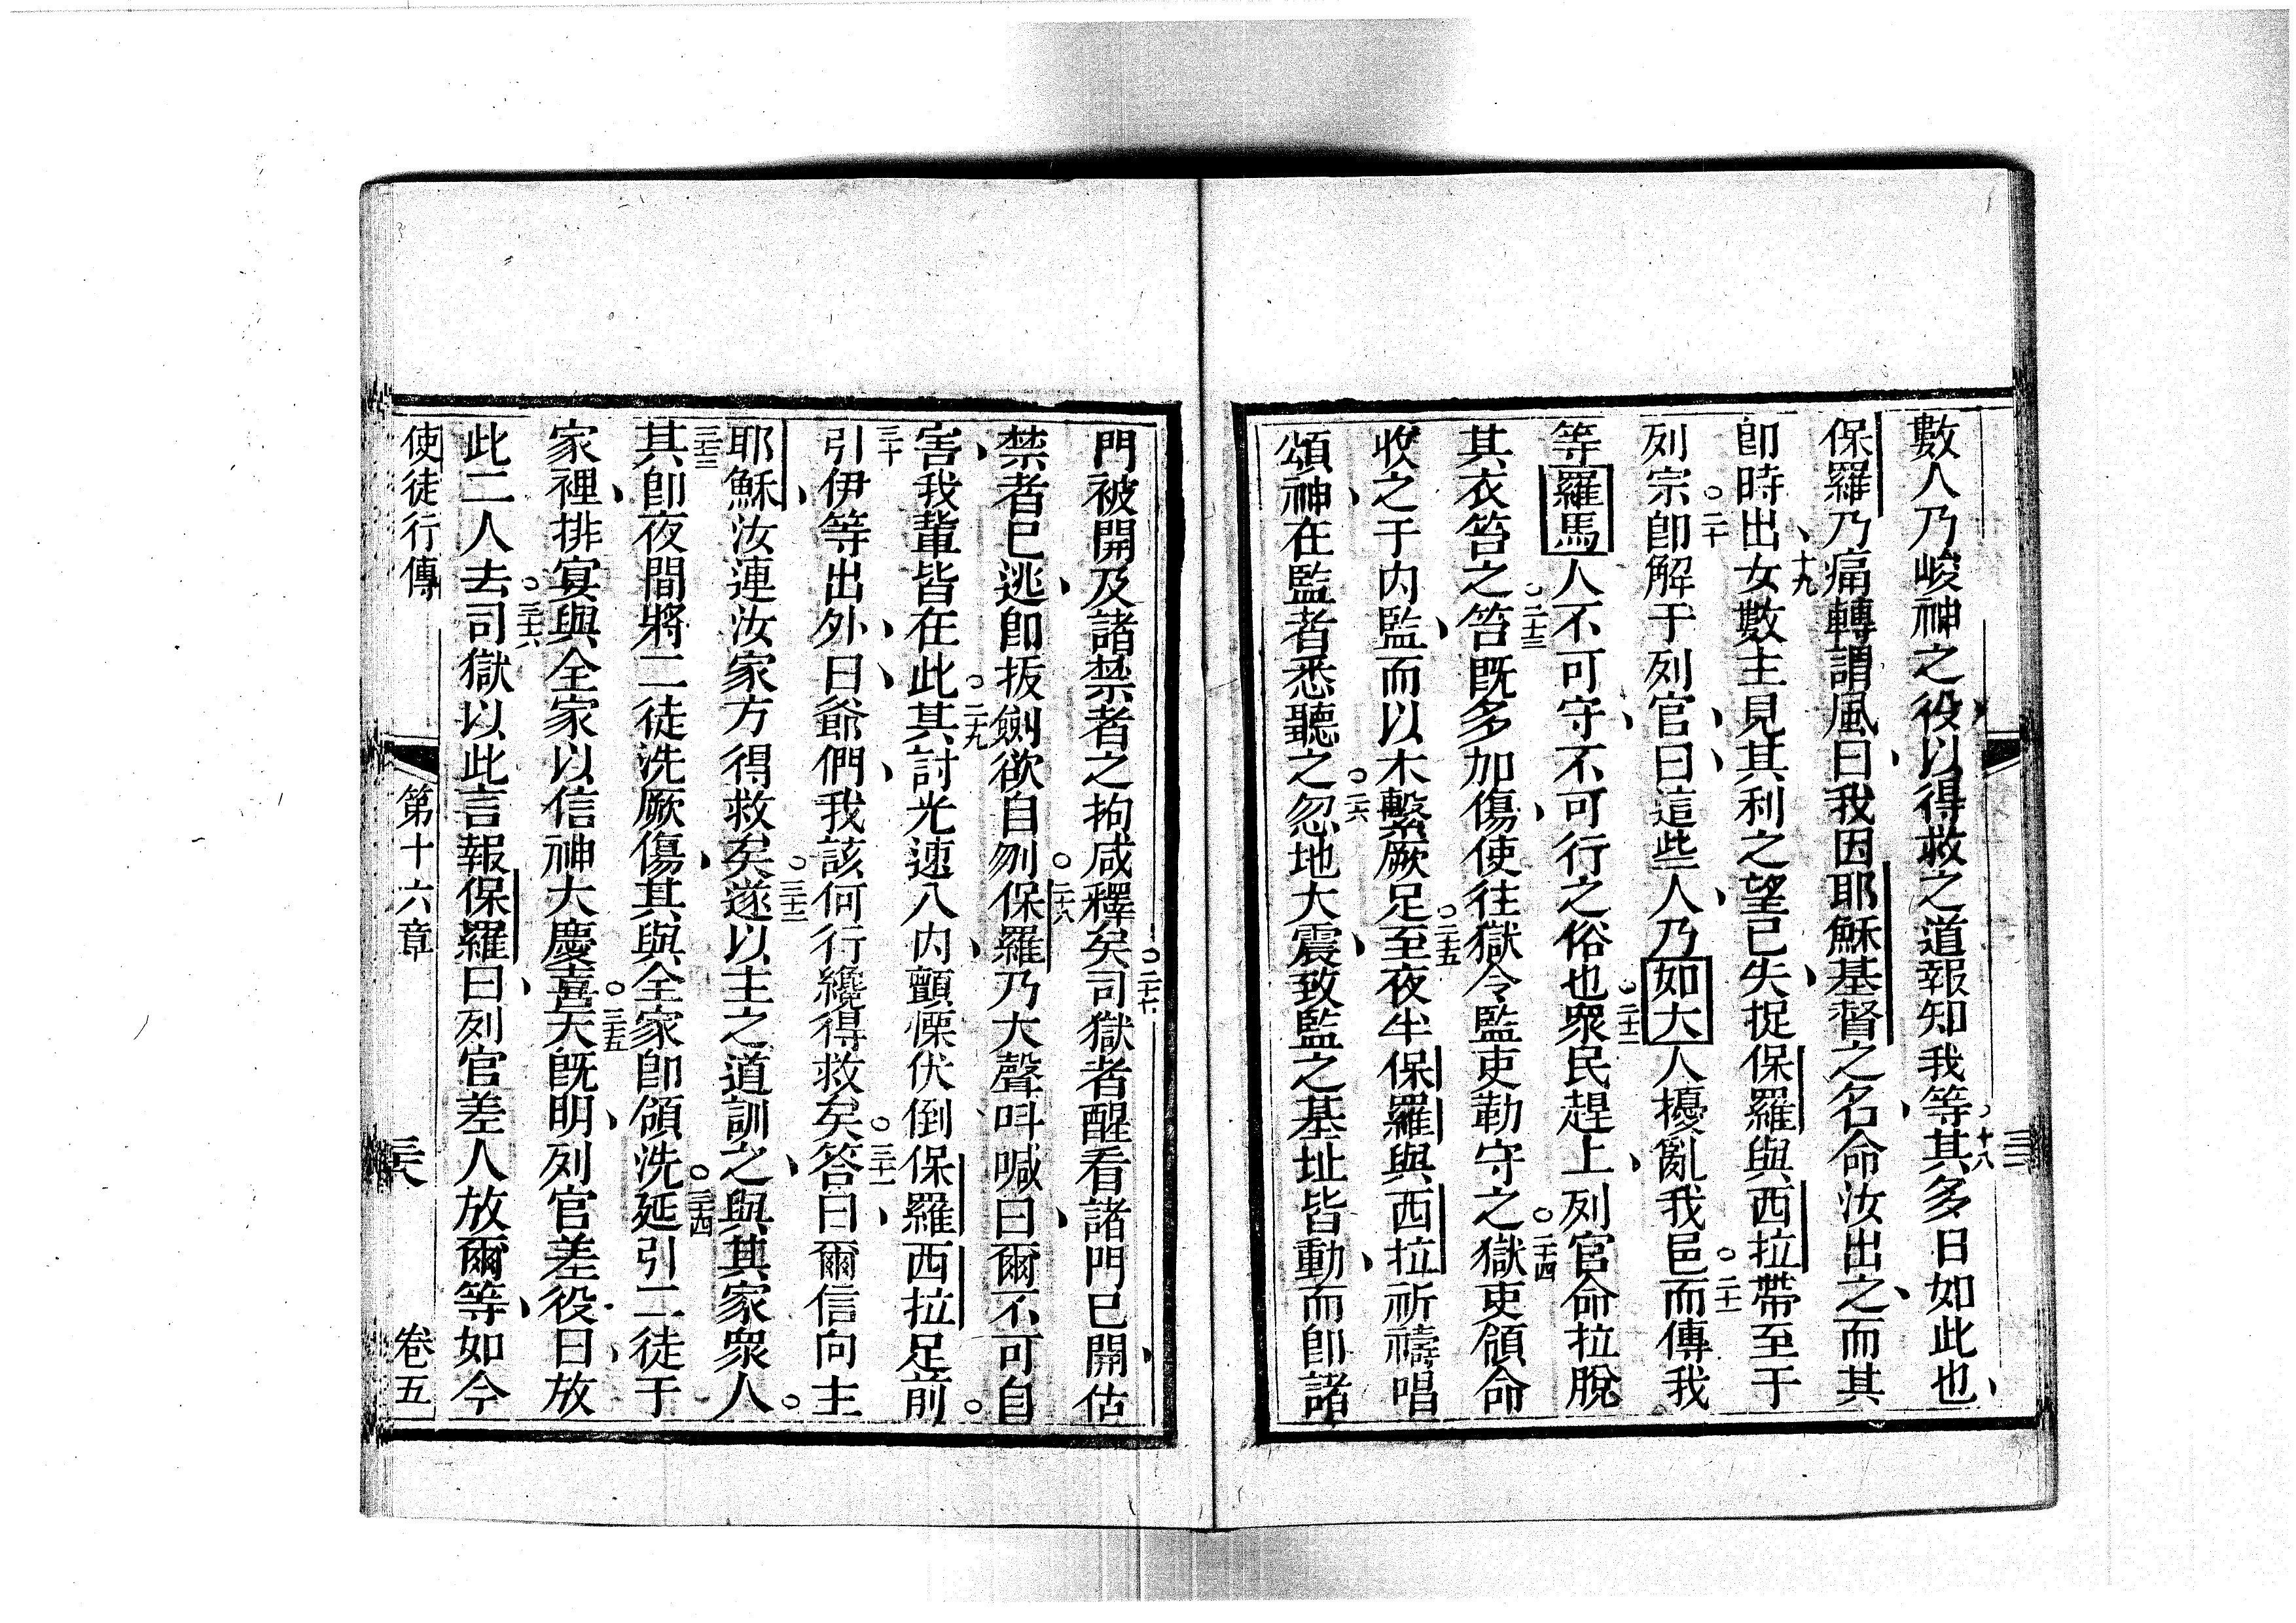 數人乃峻神之役以得救之道報知我等十八其多日如此也
保羅乃痛轉謂風曰我因耶穌基督之名命汝出之而其
卽時出女十九數主見其利之望已失捉保羅與西拉帶至于
列宗二十卽解于列官曰這些人乃如大人擾亂我邑二十一而傳我
等羅馬人不可守不可行之俗也二十二衆民趕上列官命拉脫
其衣笞之二十三笞既多加傷使往獄令監吏勒守之二十四獄吏領命
收之于內監而以木繫厥足二十五至夜半保羅與西拉祈禱唱
頌神在監者悉聽之二六忽地大震致監之基址皆動而卽諸
門被開及諸禁者之拘咸釋矣二十七司獄者醒看諸門已開估
禁者已逃卽拔劍欲自刎二十八保羅乃大聲呌喊曰爾不可自
害我輩皆在此二十九其討光速入內顫慄伏倒保羅西拉足前
三十引伊等出外曰爺們我該何行纔得救矣三十一答曰爾信向主
耶穌汝連汝家方得救矣三十二遂以主之道訓之與其家衆人
三十三其卽夜間將二徒洗厥傷其與全家卽領洗三十四延引二徒于
家裡排宴與全家以信神大慶喜三十五天既明列官差役曰放
此二人去三十六司獄以此言報保羅曰列官差人放爾等如今
使徒行傳 第十六章 卷五